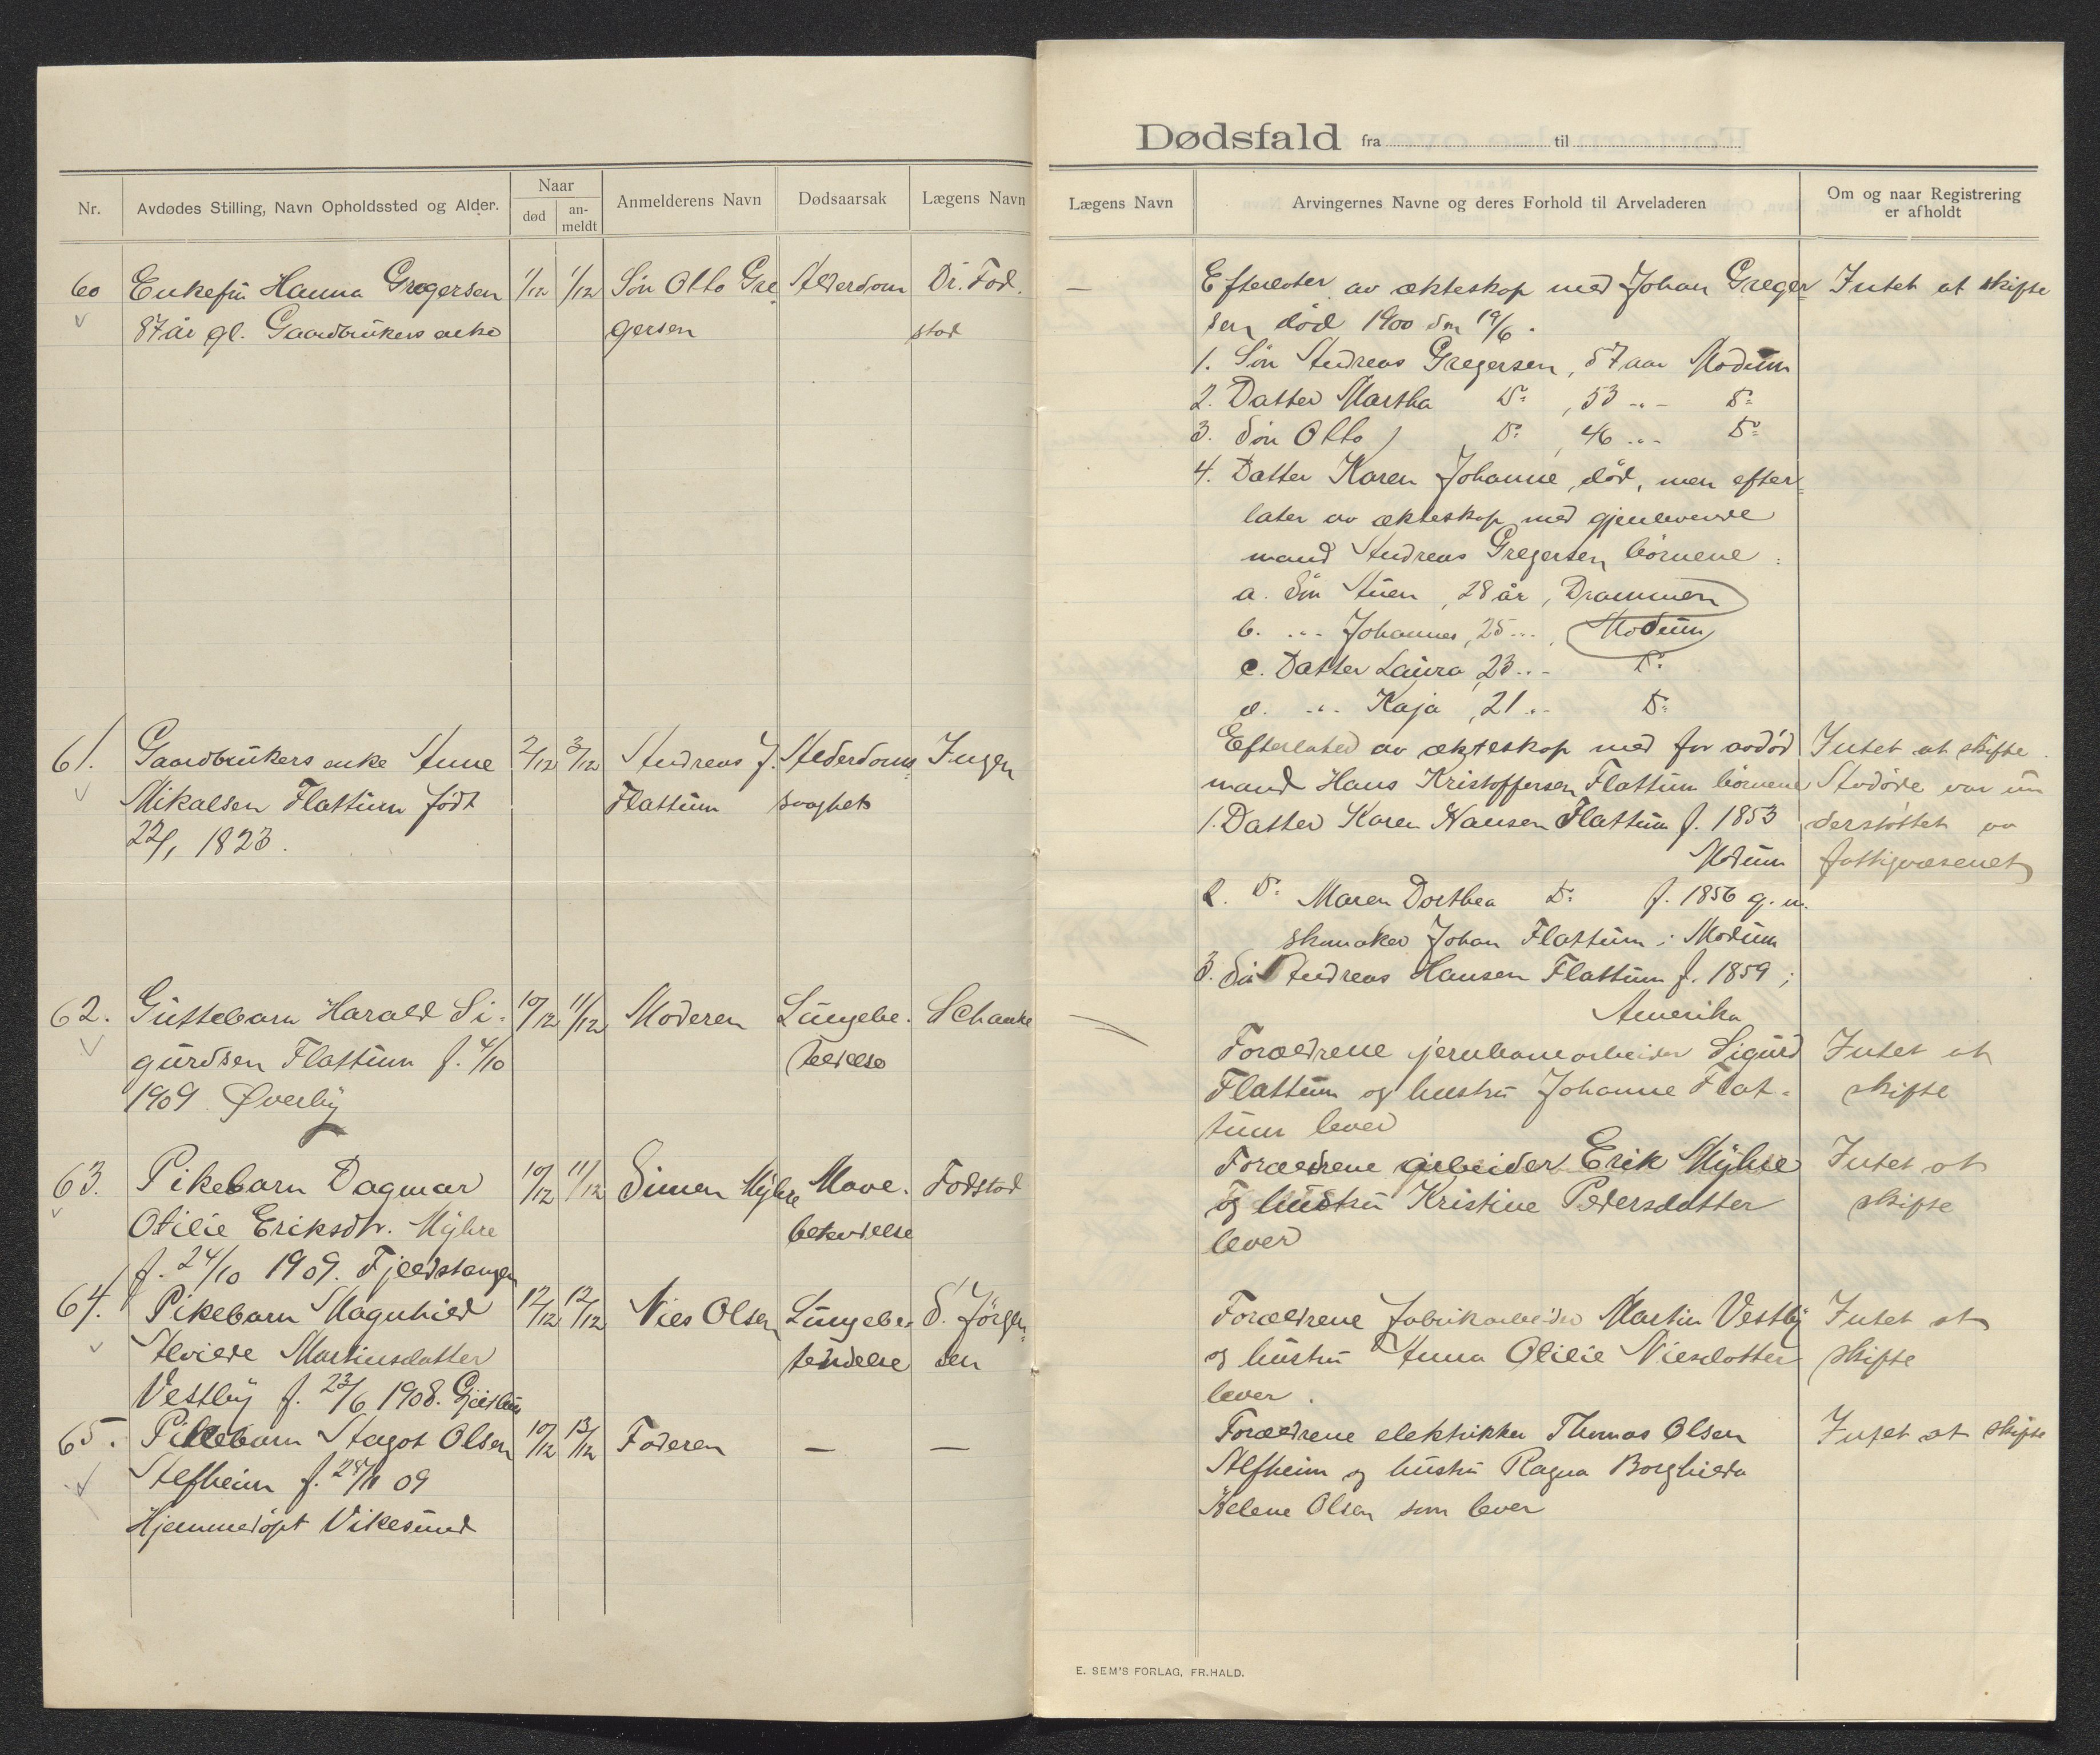 Nr.
Avdødes Stilling, Navn Opholdssted og Alder.
Naar
død
an-
meldt
Anmelderens Navn
Dødsaarsak
Lægens Navn
60 Enkefru Hanna Gregersen 1/12 1/12 Søn Otto Gre Alderdom Dr. Fod.
87 år gl. Gaardbrukers enke gersen stad
61. Gaardbrukers enke Anne 2/12 3/12 Andreas J. Alderdoms Ingen
Mikalsen Flattum født Flattum svaghet
22/1 1823.
62. Guttebarn Harald Si- 10/12 11/12 Moderen Lungebe- Schanke
gurdsen Flattum f. 4/10 tendelse
1909 Øverby
63. Pikebarn Dagmar 10/12 11/12 Simen Myhre Mave- Fodstad
Otilie Eriksdtr. Myhre betendelse
f. 24/10 1909. Fjeldstangen
64. Pikebarn Magnhild 12/12 12/12 Nils Olsen Lungebe- S. Jørgen-
Alvilde Martinsdatter tendelse sen
Vestby f. 23/6 1908.
65. Pikebarn Aagot Olsen 10/12 13/12 Faderen — —
Alfheim f. 09
Hjemmedøpt Vikesund
Dødsfald fra til
Lægens Navn
Arvingernes Navne og deres Forhold til Arveladeren
Om og naar Registrering
er afholdt
— Efterlater av ekteskap med Johan Greger- Intet at skifte
sen død 1900 den 19/6.
1. Søn Andreas Gregersen, 57 aar Modum
2. Datter Martha Do , 53 -"- Do
3. Søn Otto, Do , 46 -"- Do
4. Datter Karen Johanne, død, men efter-
later av ekteskap med gjenlevende
mand Andreas Gregersen børnene:
a. Søn 28 år, Drammen
b. -"- Johannes, 25 -"-, Modum
c. Datter Laura, 23 -"- Do
d. -"- Kaja, 21 -"- Do
Efterlated av ekteskap med før avdød Intet at skifte.
mand Hans Kristoffersen Flattum børnene Avdøde var un
1. Datter Karen Hansen Flattum f. 1853 derstøttet av
Modum fattigvæsenet
2. Do Maren Dorthea Do f. 1856 g.m.
skomaker Johan Flattum i Modum
3. Søn Andreas Hansen Flattum f. 1859 i
Amerika
Forældrene jernbanearbeider Sigurd Intet at
Flattum og hustru Johanne Flat- skifte
tum lever
Forældrene arbeider Erik Myhre Intet at
og hustru Kristine Pedersdatter skifte
lever
Forældrene fabrikarbeider Martin Vestby Intet at
og hustru Anna Otilie Nilsdatter skifte
lever.
Forældrene elektriker Thomas Olsen Intet at skifte
Alfheim og hustru Ragna Borghilda
Helene Olsen som lever
E. SEM'S FORLAG, FR.HALD.